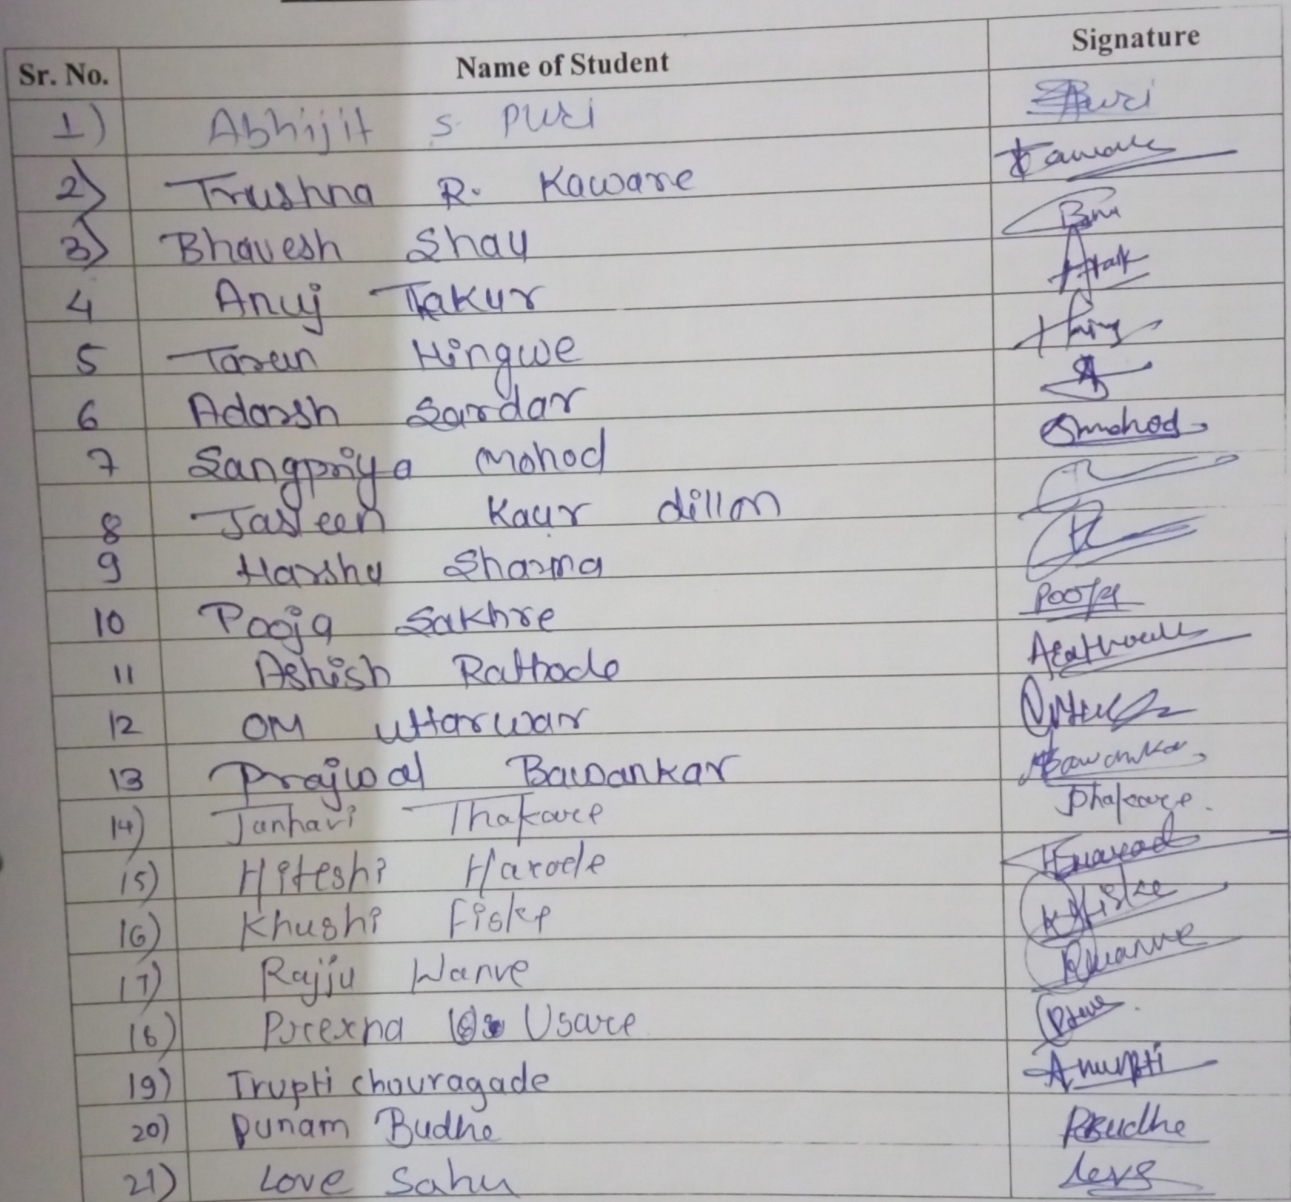 Sr. No. Name of Student Signature
1) Abhijit S. Puri Puri
2) Trushna R. Kaware Kaware
3) Bhavesh Shau
4 Anuj Takur
5 Tarun Hingwe
6 Adarsh Sardar
7 Sangpriya Mohod Smohod
8 Jasleen Kaur dillon
9 Harshu Sharma
10 Pooja Sakhre Pooja
11 Ashish Rathode
12 OM Uttarwar
13 Prajwal Bawankar Bawankar
14) Janhavi Thakare Dhakare
15) Hiteshi Harode
16) Khushi Fiske KFiske
17) Rajju Wanve RWanve
18) Prerna Usare
19) Trupti Chouragade
20) Punam Budhe PBudhe
21) Love Sahu